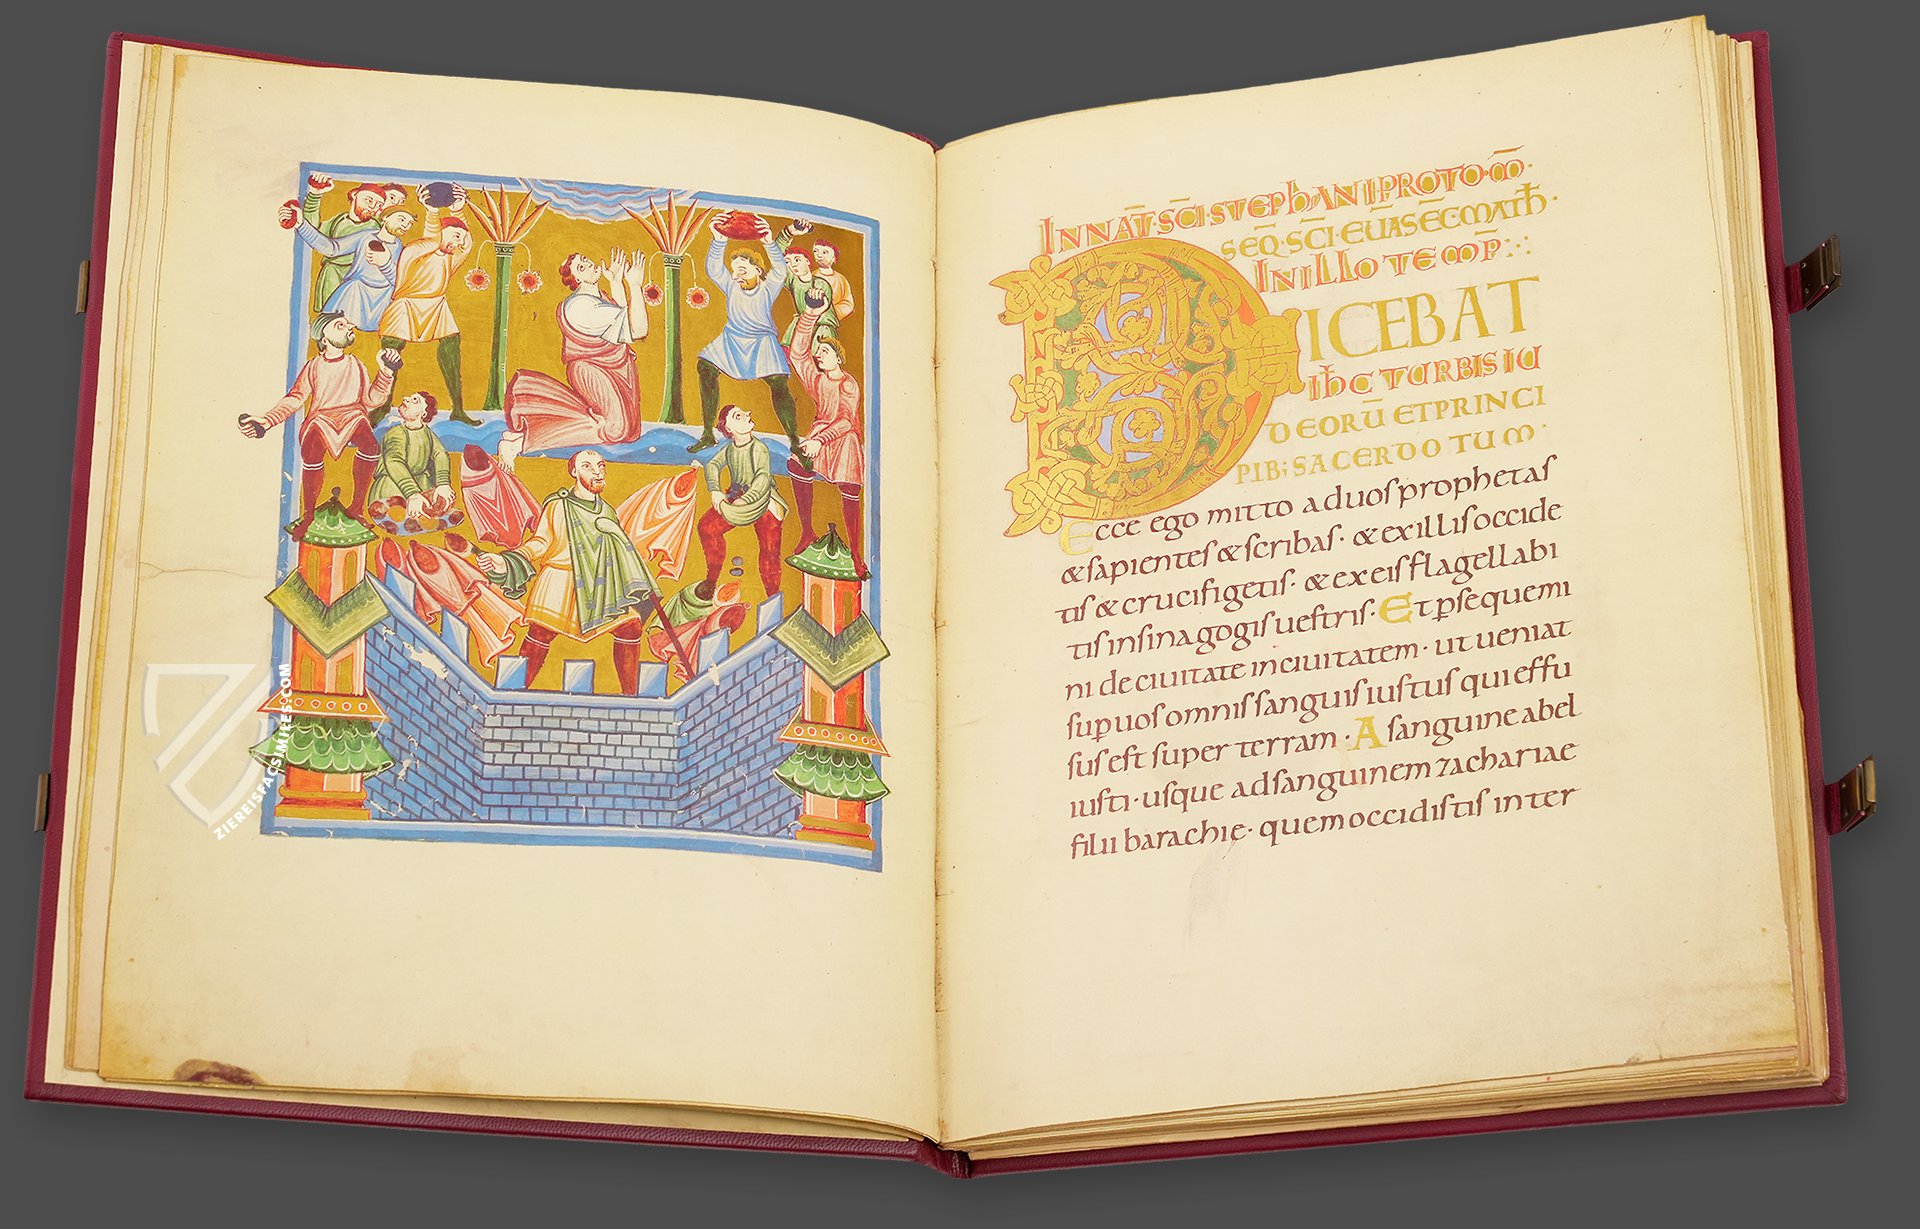 ZIEREISFACSIMILES.COM
INNAT̄·SC̄I·STEPHANI PROTO·M̄·
SEQ̄·SC̄I·EUAS̄EC̄·MATH̄·
IN ILLO TEMP̄
DICEBAT
IH̄C TURBIS IU
DEORŪ ET PRINCI
PIB; SACERDOTUM·
Ecce ego mitto ad uos prophetas
& sapientes & scribas· & ex illis occide
tis & crucifigetis· & ex eis flagellabi
tis in sinagogis uestris· Et p̱sequemi
ni de ciuitate in ciuitatem· ut ueniat
sup̱ uos omnis sanguis iustus qui effu
sus est super terram· A sanguine abel
iusti· usque ad sanguinem zachariae
filii barachie· quem occidistis inter